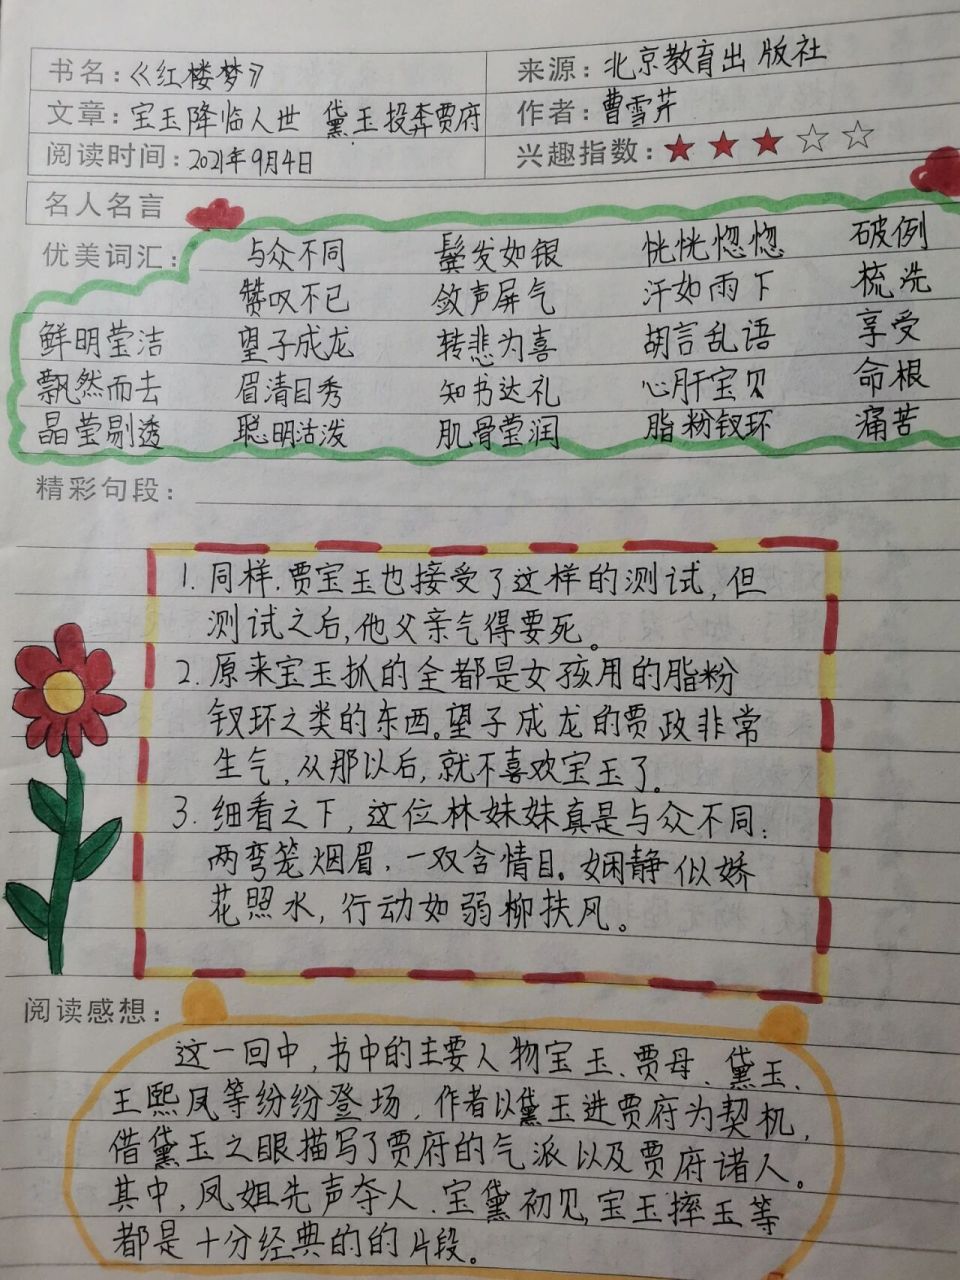 书名：《红楼梦》 来源：北京教育出版社
文章：宝玉降临人世 黛玉投奔贾府 作者：曹雪芹
阅读时间：2021年9月4日 兴趣指数：★★★☆☆
名人名言
优美词汇： 与众不同 鬓发如银 恍恍惚惚 破例
赞叹不已 敛声屏气 汗如雨下 梳洗
鲜明莹洁 望子成龙 转悲为喜 胡言乱语 享受
飘然而去 眉清目秀 知书达礼 心肝宝贝 命根
晶莹剔透 聪明活泼 肌骨莹润 脂粉钗环 痛苦
精彩句段：
1. 同样,贾宝玉也接受了这样的测试,但
测试之后,他父亲气得要死。
2. 原来宝玉抓的全都是女孩用的脂粉
钗环之类的东西。望子成龙的贾政非常
生气,从那以后,就不喜欢宝玉了。
3. 细看之下,这位林妹妹真是与众不同：
两弯笼烟眉,一双含情目。娴静似娇
花照水,行动如弱柳扶风。
阅读感想：
这一回中,书中的主要人物宝玉、贾母、黛玉、
王熙凤等纷纷登场,作者以黛玉进贾府为契机,
借黛玉之眼描写了贾府的气派以及贾府诸人。
其中,凤姐先声夺人、宝黛初见,宝玉摔玉等
都是十分经典的的片段。